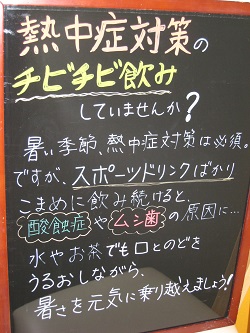 熱中症対策の
チビチビ飲み
していませんか?
暑い季節、熱中症対策は必須。
ですが、スポーツドリンクばかり
こまめに飲み続けると
酸蝕症やムシ歯の原因に…
水やお茶でも口とのどを
うるおしながら、
暑さを元気に乗り越えましょう!